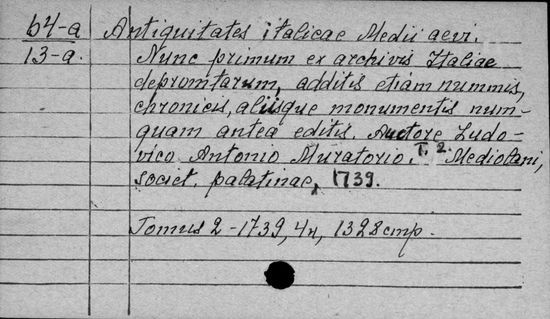 64-a Antiquitates italicae Medii aevi.
13-a. Nunc primum ex archivis Italiae
depromtarum, additis etiam nummis,
chronicis, aliisque monumentis num-
quam antea editis. Auctore Ludo-
vico Antonio Muratorio. T. 2. Mediolani,
societ. palatinae, 1739.
Tomus 2 - 1739, 4н, 1328 стр.